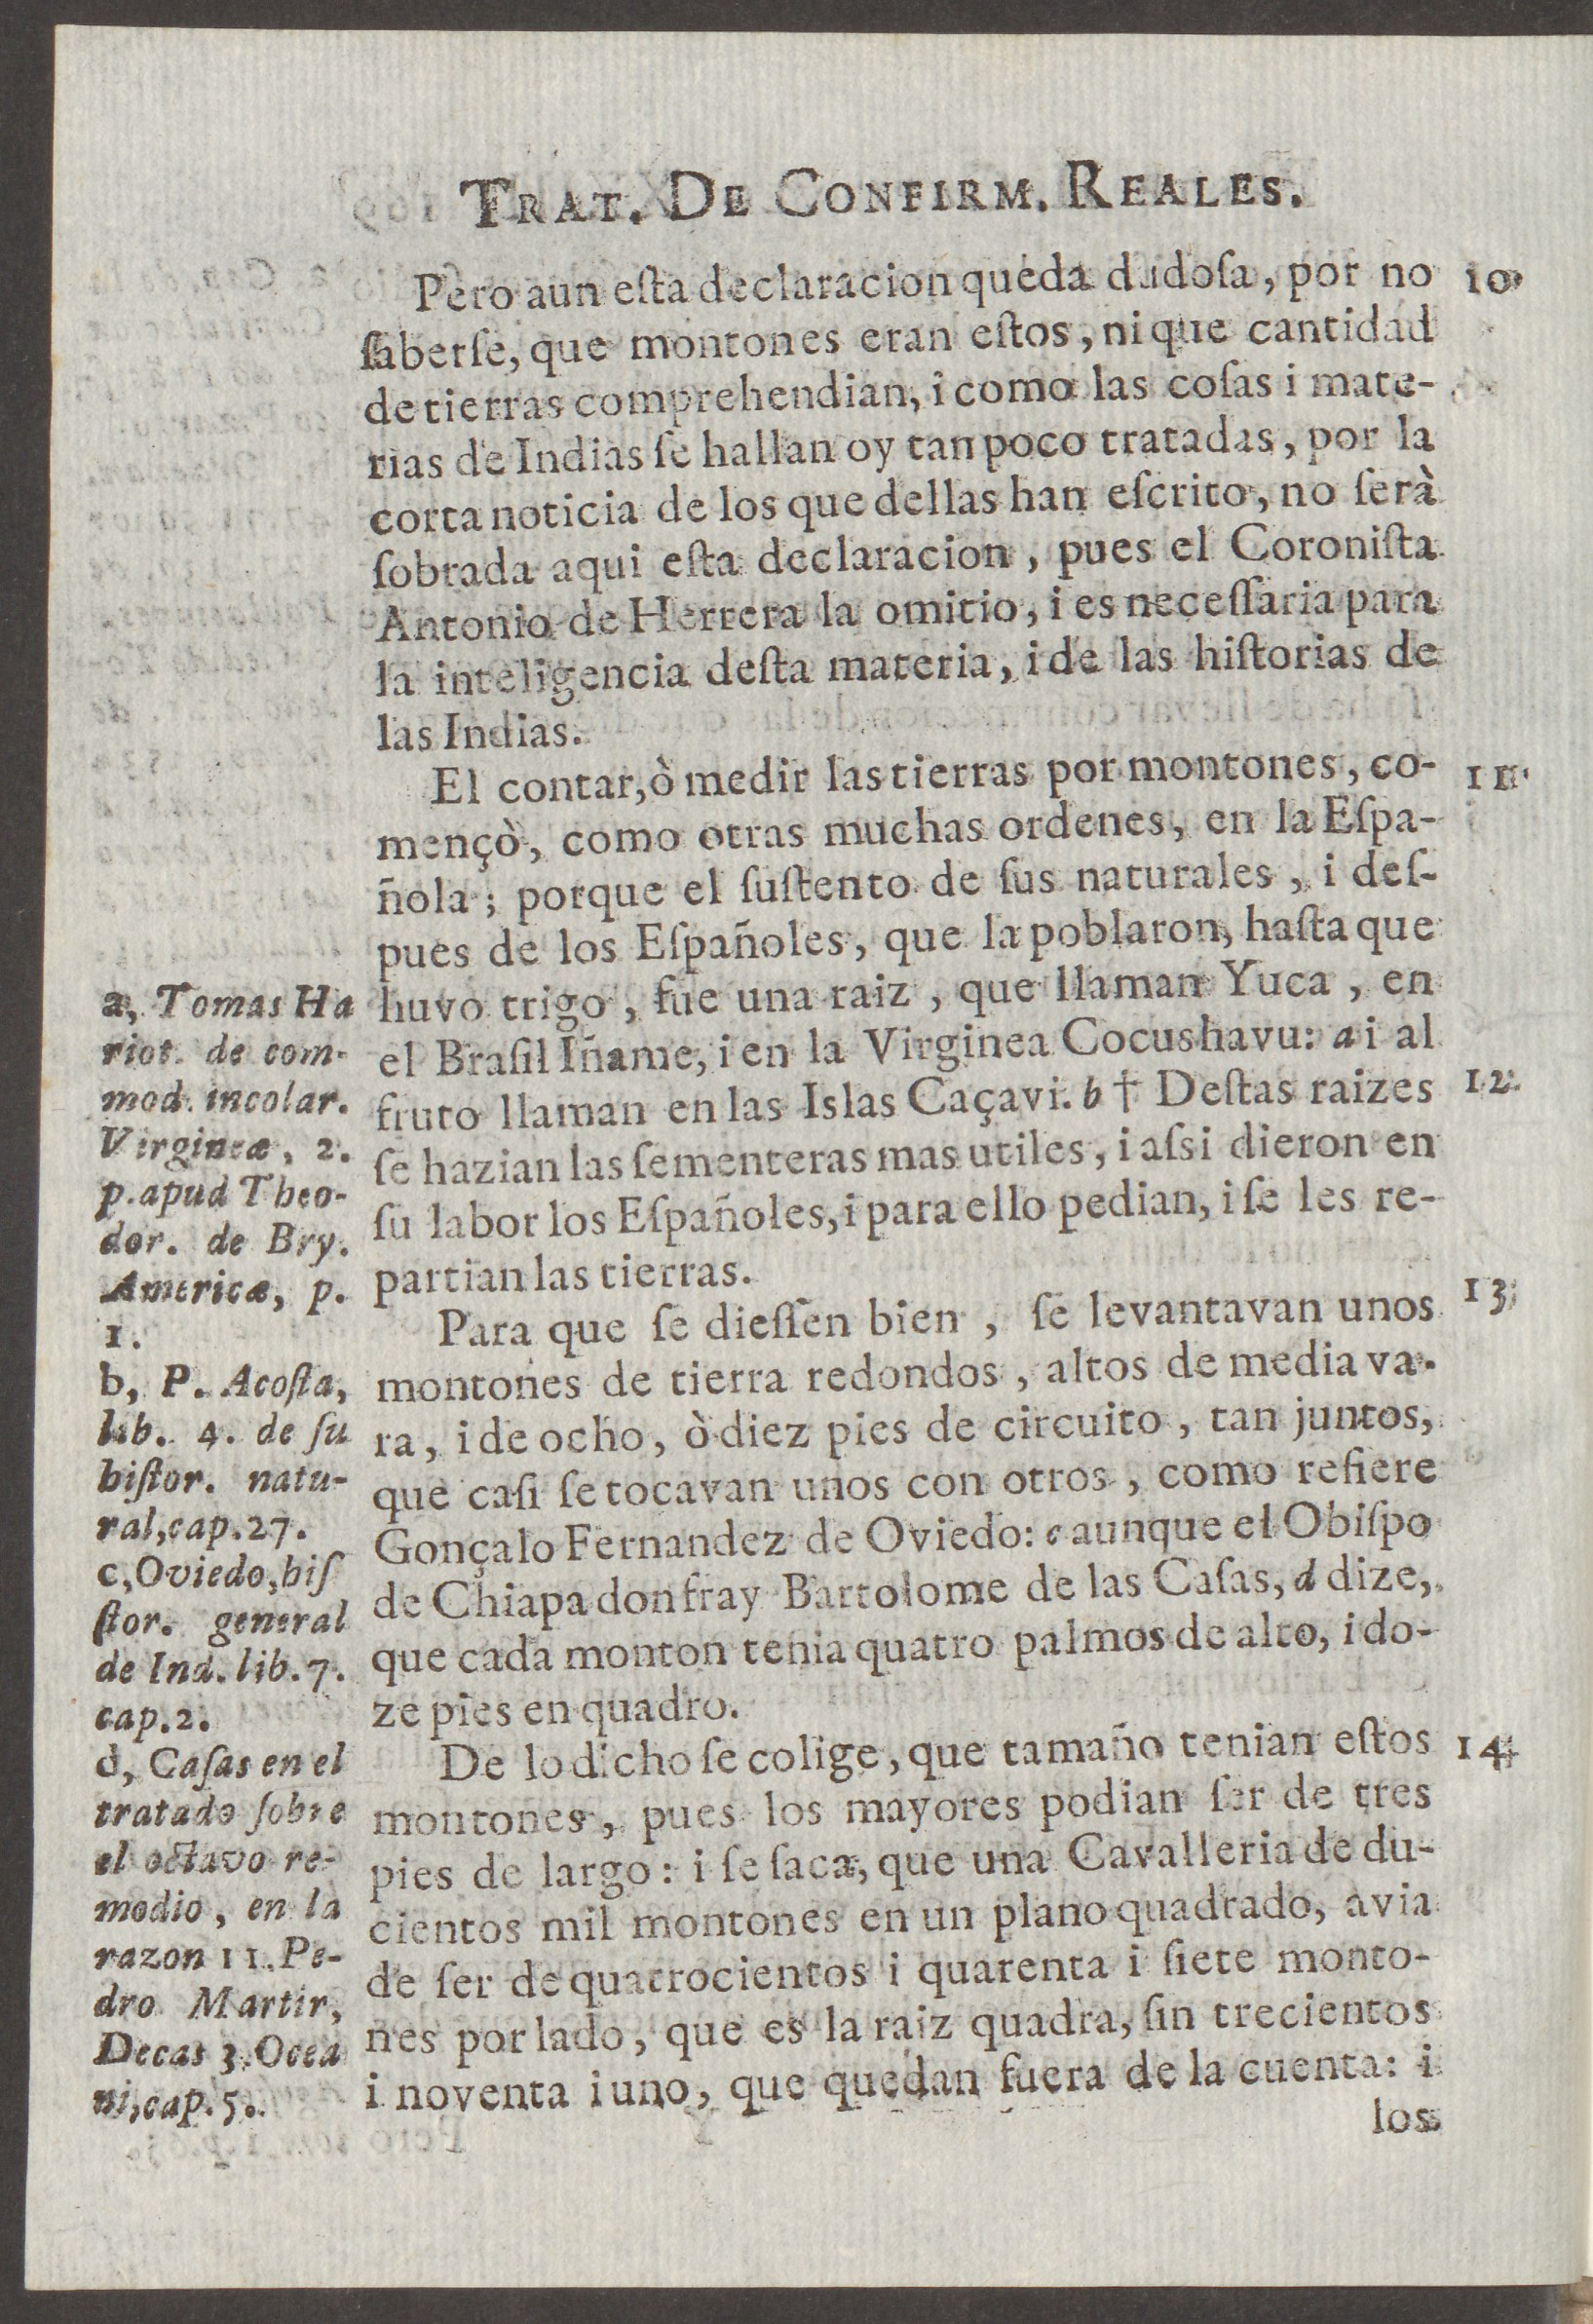 TRAT. DE CONFIRM. REALES.
Pero aun eſta declaracion queda dudoſa, por no
ſaberſe, que montones eran eſtos, ni que cantidad
de tierras comprehendian, i como las coſas i mate-
rias de Indias ſe hallan oy tan poco tratadas, por la
corta noticia de los que dellas han eſcrito, no ſerà
ſobrada aqui eſta declaracion, pues el Coroniſta
Antonio de Herrera la omitio, i es neceſſaria para
la inteligencia deſta materia, i de las hiſtorias de
las Indias.
10
El contar, ò medir las tierras por montones, co-
mençò, como otras muchas ordenes, en la Eſpa-
ñola; porque el ſuſtento de ſus naturales, i deſ-
pues de los Eſpañoles, que la poblaron, haſta que
huvo trigo, fue una raiz, que llaman Yuca, en
el Braſil Iñame, i en la Virginea Cocushavu: a i al
fruto llaman en las Islas Caçavi. b † Deſtas raizes
ſe hazian las ſementeras mas utiles, i aſsi dieron en
ſu labor los Eſpañoles, i para ello pedian, i ſe les re-
partian las tierras.
11
12
Para que ſe dieſſen bien, ſe levantavan unos
montones de tierra redondos, altos de media va-
ra, i de ocho, ò diez pies de circuito, tan juntos,
que caſi ſe tocavan unos con otros, como refiere
Gonçalo Fernandez de Oviedo: c aunque el Obiſpo
de Chiapa don fray Bartolome de las Caſas, d dize,
que cada monton tenia quatro palmos de alto, i do-
ze pies en quadro.
13
De lo dicho ſe colige, que tamaño tenian eſtos
montones, pues los mayores podian ſer de tres
pies de largo: i ſe ſaca, que una Cavalleria de du-
cientos mil montones en un plano quadrado, avia
de ſer de quatrocientos i quarenta i ſiete monto-
nes por lado, que es la raiz quadra, ſin trecientos
i noventa i uno, que quedan fuera de la cuenta: i
los
14
a, Tomas Ha
riot. de com-
mod. incolar.
Virgineæ, 2.
p. apud Theo-
dor. de Bry.
Americæ, p.
1.
b, P. Acoſta,
lib. 4. de ſu
hiſtor. natu-
ral, cap. 27.
c, Oviedo, hiſ
ſtor. general
de Ind. lib. 7.
cap. 2.
d, Caſas en el
tratado ſobre
el octavo re-
medio, en la
razon 11. Pe-
dro Martir,
Decas 3. Ocea
ni, cap. 5.